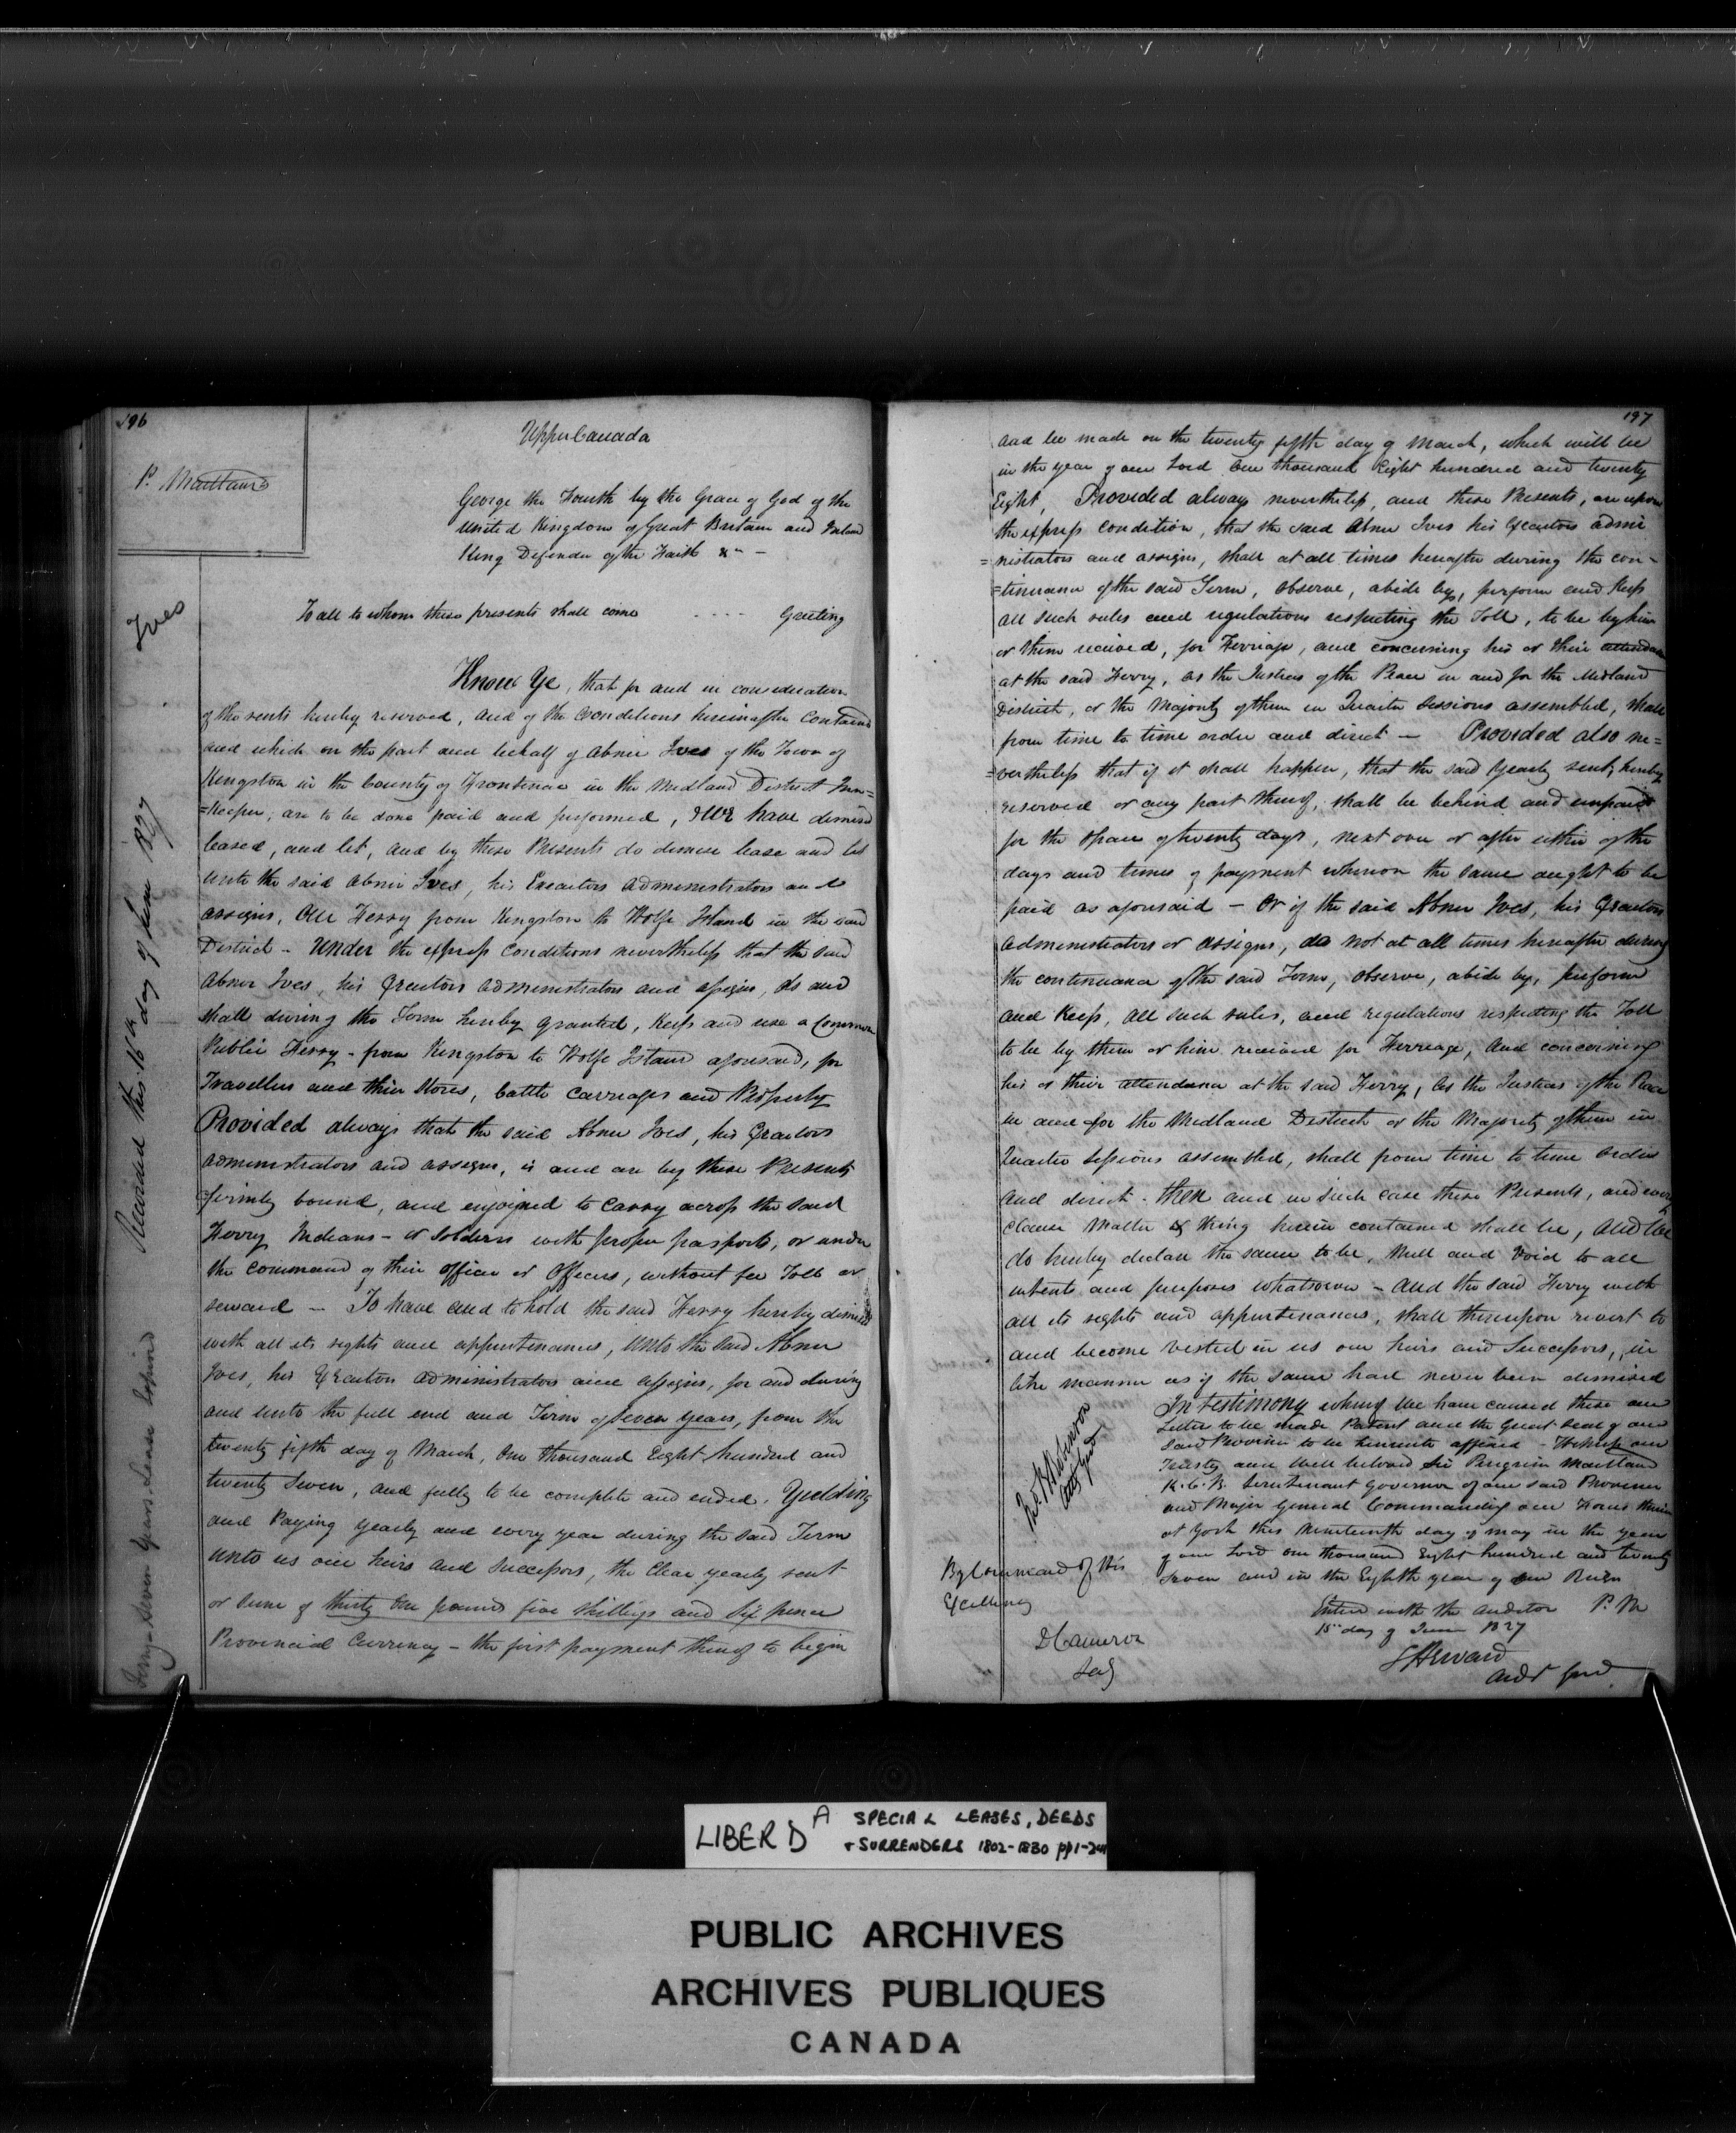 196
P. Maitland
Upper Canada
George the Fourth by the Grace of God of the
United Kingdom of Great Britain and Ireland
King Defender of the Faith &c -
To all to whom these presents shall come - - - - Greeting
Ives
Recorded this 16th day of June 1827
Ferry Seven Years Lease Expired
Know Ye, that for and in consideration
of the rents hereby reserved, and of the Conditions hereinafter Contained
and which on the part and behalf of Abner Ives of the Town of
Kingston in the County of Frontenac in the Midland District Inn=
=keeper, are to be done paid and performed, We have demised
leased, and let, and by these Presents do demise lease and let
unto the said Abner Ives, his Executors administrators and
assigns, Our Ferry from Kingston to Wolfe Island in the said
District - Under the express Conditions nevertheless that the said
Abner Ives, his Executors administrators and assigns, do and
shall during the Term hereby granted, keep and use a Common
Public Ferry - from Kingston to Wolfe Island aforesaid, for
Travellers and their Stores, Cattle Carriages and Property
Provided always that the said Abner Ives, his Executors
administrators and assigns, is and are by these Presents
firmly bound, and enjoined to Carry across the said
Ferry Indians - or Soldiers with proper passports, or under
the Command of their Officer or Officers, without fee Toll or
reward - To have and to hold the said Ferry hereby demised
with all its rights and appurtenances, Unto the said Abner
Ives, his Executors administrators and assigns, for and during
and unto the full end and Term of seven years, from the
twenty fifth day of March, One thousand Eight hundred and
twenty Seven, and fully to be complete and ended. Yielding
and Paying yearly and every year during the said Term
unto us our heirs and Successors, the Clear yearly rent
or Sum of thirty One pounds five shillings and six pence
Provincial Currency - the first payment thereof to begin
197
and be made on the twenty fifth day of March, which will be
in the year of our Lord One thousand Eight hundred and twenty
Eight, Provided always nevertheless, and these Presents, are upon
the express Condition, that the said Abner Ives his Executors admi
=nistrators and assigns, shall at all times hereafter during the con-
=tinuance of the said Term, observe, abide by, perform and keep
all such rules and regulations respecting the Toll, to be by him
or them received, for Ferriage, and concerning his or their attendance
at the said Ferry, as the Justices of the Peace in and for the Midland
District, or the Majority of them in Quarter Sessions assembled, shall
from time to time order and direct - Provided also ne=
=vertheless that if it shall happen, that the said yearly rent, hereby
reserved or any part thereof, shall be behind and unpaid
for the space of twenty days, next over or after either of the
days and times of payment whereon the same ought to be
paid as aforesaid - Or if the said Abner Ives, his Executors
administrators or assigns, do not at all times hereafter during
the continuance of the said Term, observe, abide by, perform
and keep, all such rules, and regulations respecting the Toll
to be by them or him received for Ferriage, and concerning
his or their attendance at the said Ferry, as the Justices of the Peace
in and for the Midland District or the Majority of them in
Quarter Sessions assembled, shall from time to time order
and direct - then and in such case these Presents, and every
clause matter & thing herein contained shall be, and We
do hereby declare the same to be, null and Void to all
intents and purposes whatsoever - and the said Ferry with
all its rights and appurtenances, shall thereupon revert to
and become vested in us our heirs and Successors, in
like manner as if the same had never been demised
In testimony whereof We have caused these our
Letters to be made Patent and the Great Seal of our
said Province to be hereunto affixed - Witness our
Trusty and Well beloved Sir Peregrine Maitland
K.C.B. Lieutenant Governor of our said Province
and Major General Commanding our Forces therein
at York this Nineteenth day of May in the year
of our Lord one thousand Eight hundred and twenty
Seven and in the Eighth year of our Reign
Jno. B Robinson
Atty Genl
By Command of His
Excellency
D Cameron
Secy
Enterd with the Auditor P. M
15" day of June 1827
S Heward
Audr Genl
LIBER D A SPECIAL LEASES, DEEDS
+ SURRENDERS 1802-1830 pp1-241
PUBLIC ARCHIVES
ARCHIVES PUBLIQUES
CANADA